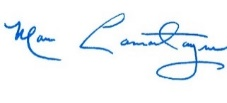 Marc Lamontagne